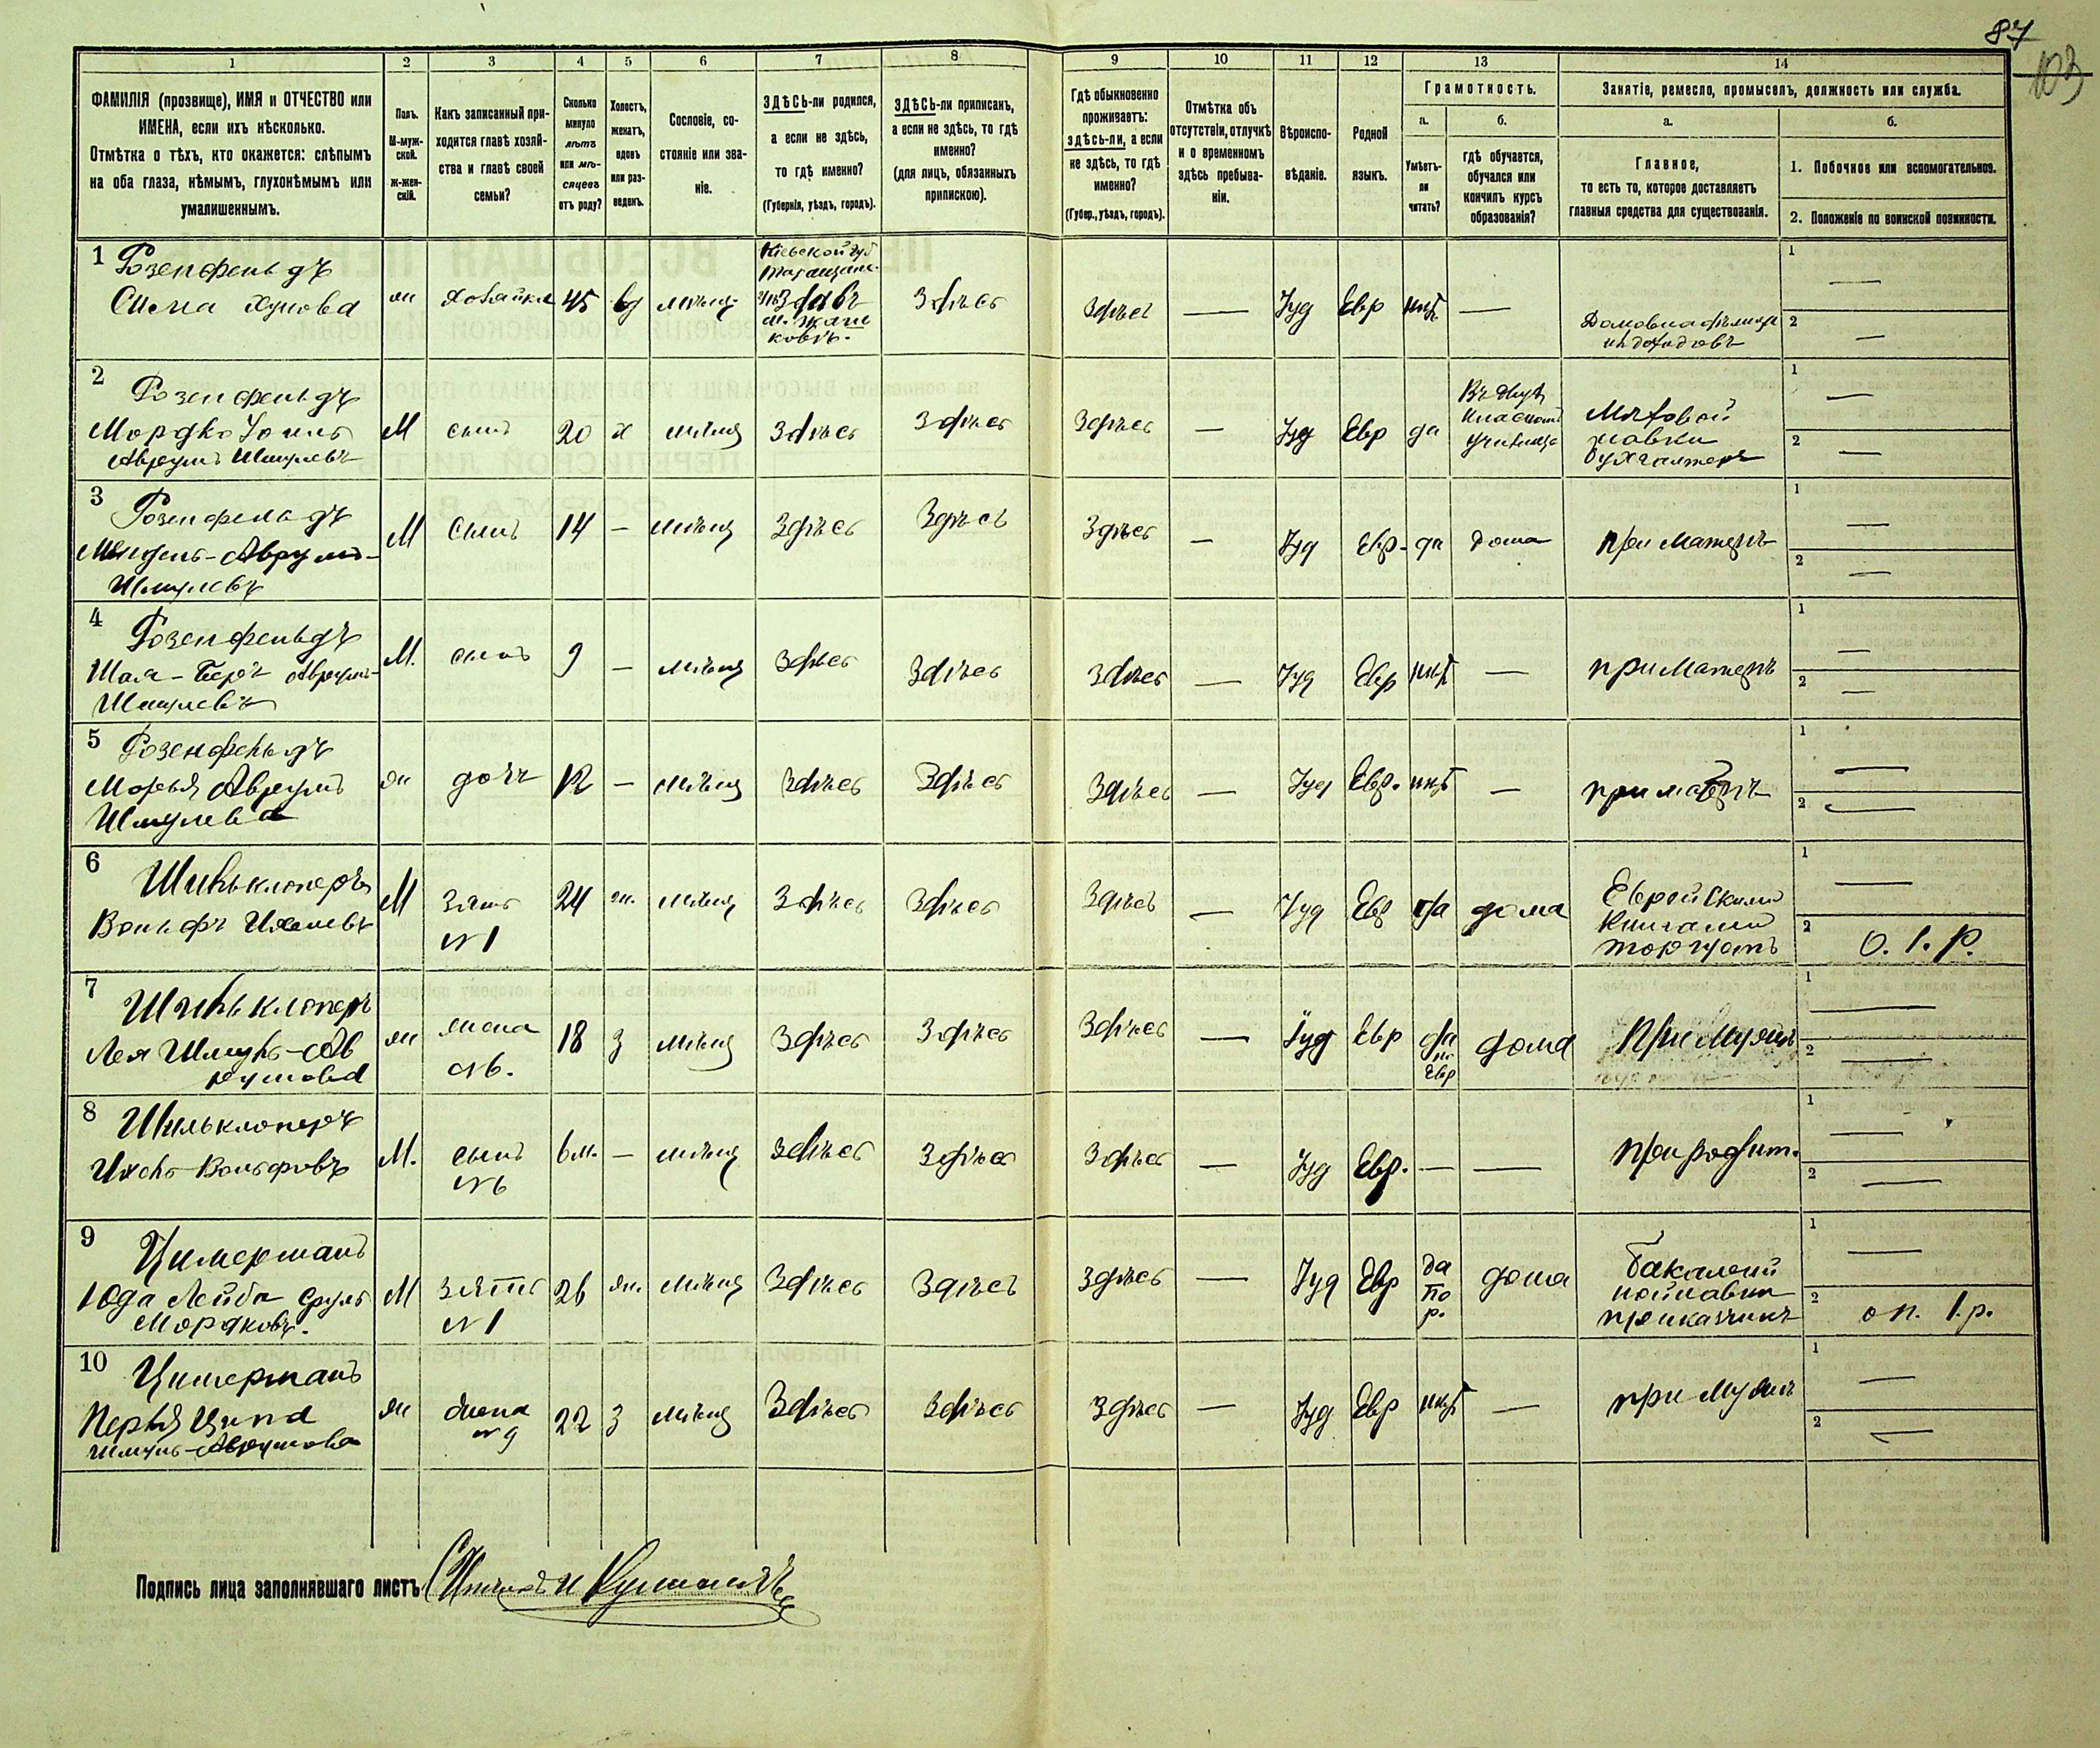 87
103
1 2 3 4 5 6 7 8 9 10 11 12 13 14
ФАМИЛІЯ (прозвище), ИМЯ и ОТЧЕСТВО или
ИМЕНА, если ихъ нѣсколько.
Отмѣтка о тѣхъ, кто окажется: слѣпымъ
на оба глаза, нѣмымъ, глухонѣмымъ или
умалишеннымъ.
Полъ.
М-муж-
ской.
Ж-жен-
скій.
Какъ записанный при-
ходится главѣ хозяй-
ства и главѣ своей
семьи?
Сколько
минуло
лѣтъ
или мѣ-
сяцевъ
отъ роду?
Холостъ,
женатъ,
вдовъ
или раз-
веденъ.
Сословіе, со-
стояніе или зва-
ніе.
ЗДѢСЬ-ли родился,
а если не здѣсь,
то гдѣ именно?
(Губернія, уѣздъ, городъ).
ЗДѢСЬ-ли приписанъ,
а если не здѣсь, то гдѣ
именно?
(для лицъ, обязанныхъ
припискою).
Гдѣ обыкновенно
проживаетъ:
здѣсь-ли, а если
не здѣсь, то гдѣ
именно?
(Губер., уѣздъ, городъ).
Отмѣтка объ
отсутствіи, отлучкѣ
и о временномъ
здѣсь пребыва-
ніи.
Вѣроиспо-
вѣданіе.
Родной
языкъ.
Грамотность.
а.
Умѣетъ-
ли
читать?
б.
гдѣ обучается,
обучался или
кончилъ курсъ
образованія?
Занятіе, ремесло, промыселъ, должность или служба.
а.
Главное,
то есть то, которое доставляетъ
главныя средства для существованія.
б.
1. Побочное или вспомогательное.
2. Положеніе по воинской повинности.
1 Розенфельдъ
Сима Хунова
ж хозайка 45 вд мѣщ.
Кіевской губ
Таращанс.
м. Жаш
ковъ.
Здѣсь Здѣсь — Іуд Евр нѣт —
Домовладѣлица
1 —
2 —
2 Розенфельдъ
Мордко
Аврумъ Шмулевъ
М сынъ 20 х мѣщ Здѣсь Здѣсь Здѣсь — Іуд Евр да
Въ двух
класном
училище
лавки
бухгалтеръ
1 —
2 —
3 Розенфельдъ
Мендель-Аврумъ-
Шмулевъ
М Сынъ 14 — мѣщ Здѣсь Здѣсь Здѣсь — Іуд Евр. да дома при Матерѣ
1 —
2 —
4 Розенфельдъ
Шая-Беръ Аврумъ-
Шмулевъ
М. сынъ 9 — мѣщ Здѣсь Здѣсь Здѣсь — Іуд Евр нѣт — при Матерѣ
1 —
2 —
5 Розенфельдъ
Морья Аврумъ
Шмулева
ж дочь 12 — мѣщ Здѣсь Здѣсь Здѣсь — Іуд Евр. нѣт — при матерѣ
1 —
2 —
6 Шильклоперъ
Вольфъ Ихелевъ
М Зять
№1
24 ж. мѣщ Здѣсь Здѣсь Здѣсь — Іуд Евр да дома
Еврейскими
Книгами
торгуетъ
1 —
2 О. 1. Р.
7 Шильклоперъ
Лея Шмуль-Ав
румова
ж жена
№6.
18 З мѣщ Здѣсь Здѣсь Здѣсь — Іуд Евр
да
по
Евр
дома При Мужѣ
1 —
2 —
8 Шильклоперъ
Ихель Вольфовъ
М. сынъ
№6
6 м. — мѣщ Здѣсь Здѣсь Здѣсь — Іуд Евр. — — При родит.
1 —
2 —
9 Цимерманъ
Юда Лейба Сруль
Мордковъ.
М зять
№1
26 ж. мѣщ Здѣсь Здѣсь Здѣсь — Іуд Евр
да
по
р.
дома
Бакалей
ной лавки
приказчикъ
1 —
2 оп. 1. р.
10 Цимерманъ
Перля Ципа
Шмуль-Аврумова
ж жена
№9
22 З мѣщ Здѣсь Здѣсь Здѣсь — Іуд Евр нѣт — при Мужѣ
1 —
2 —
Подпись лица заполнявшаго листъ